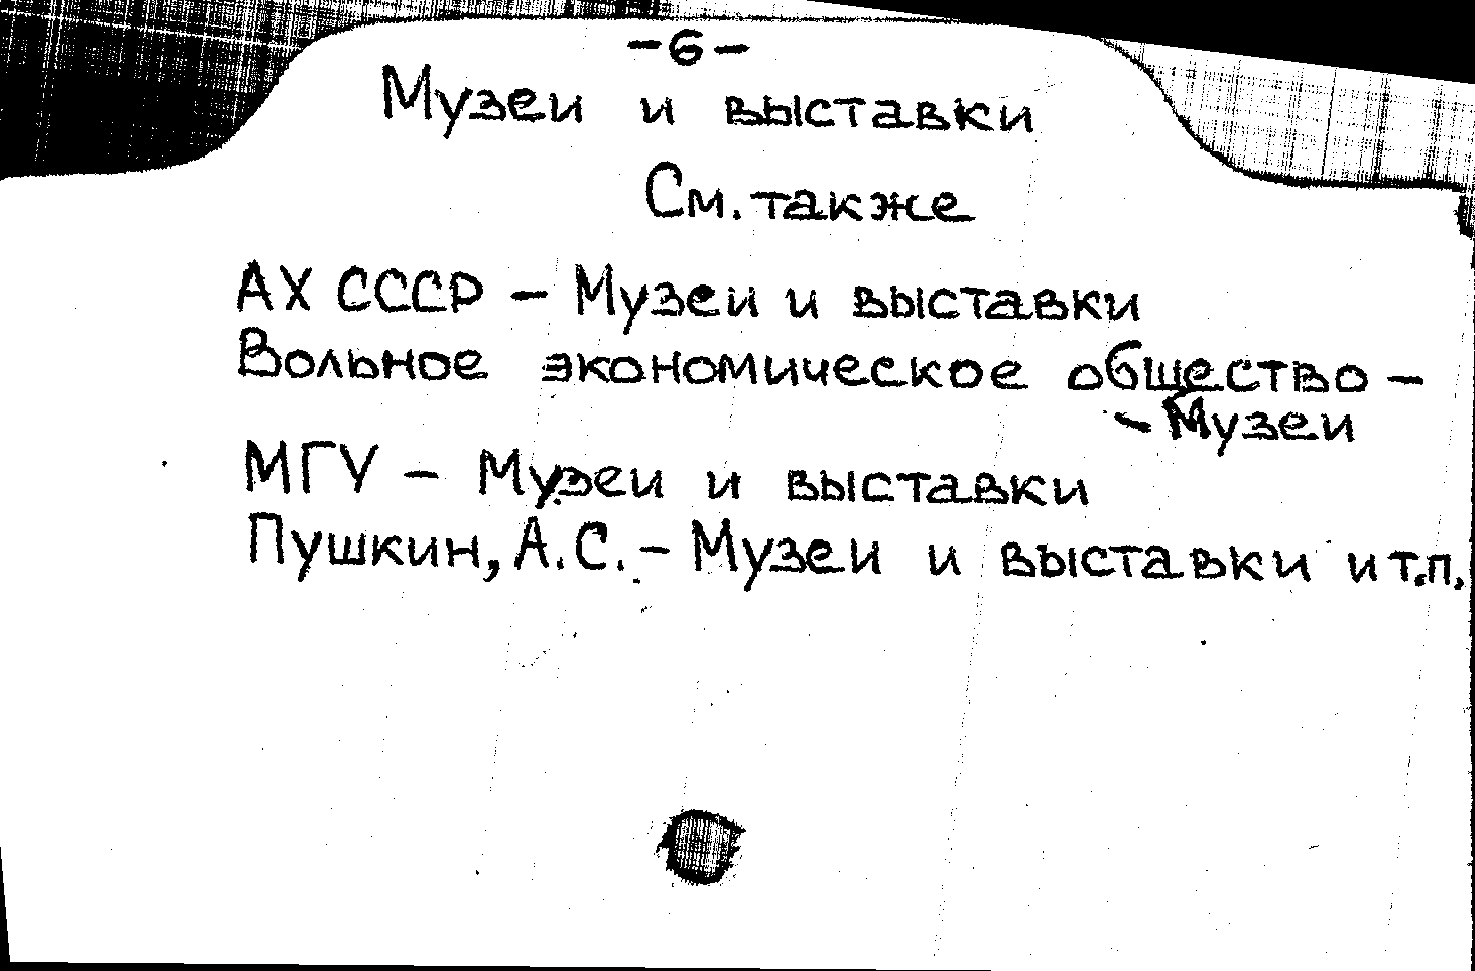 -6-
Музеи и выставки
См. также
АХ СССР - Музеи и выставки
Вольное экономическое общество -
- Музеи
МГУ - Музеи и выставки
Пушкин, А.С. - Музеи и выставки и т.п.